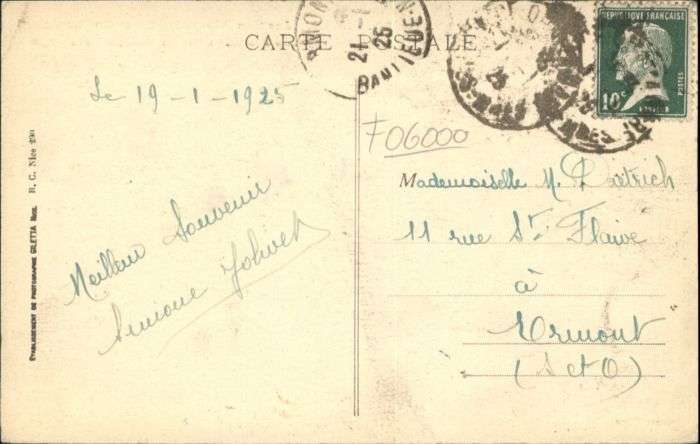 CARTE POSTALE
21 -1
25
BANLIEUE
REPUBLIQUE FRANÇAISE
POSTES
10c
Le 19-1-1925
F06000
Meilleur Souvenir
Simone Jolivet
Mademoiselle M. 
11 rue St. Flaive
à
Ermont
(S et O)
ETABLISSEMENT DE PHOTOGRAPHIE GILETTA NICE. R. C. Nice